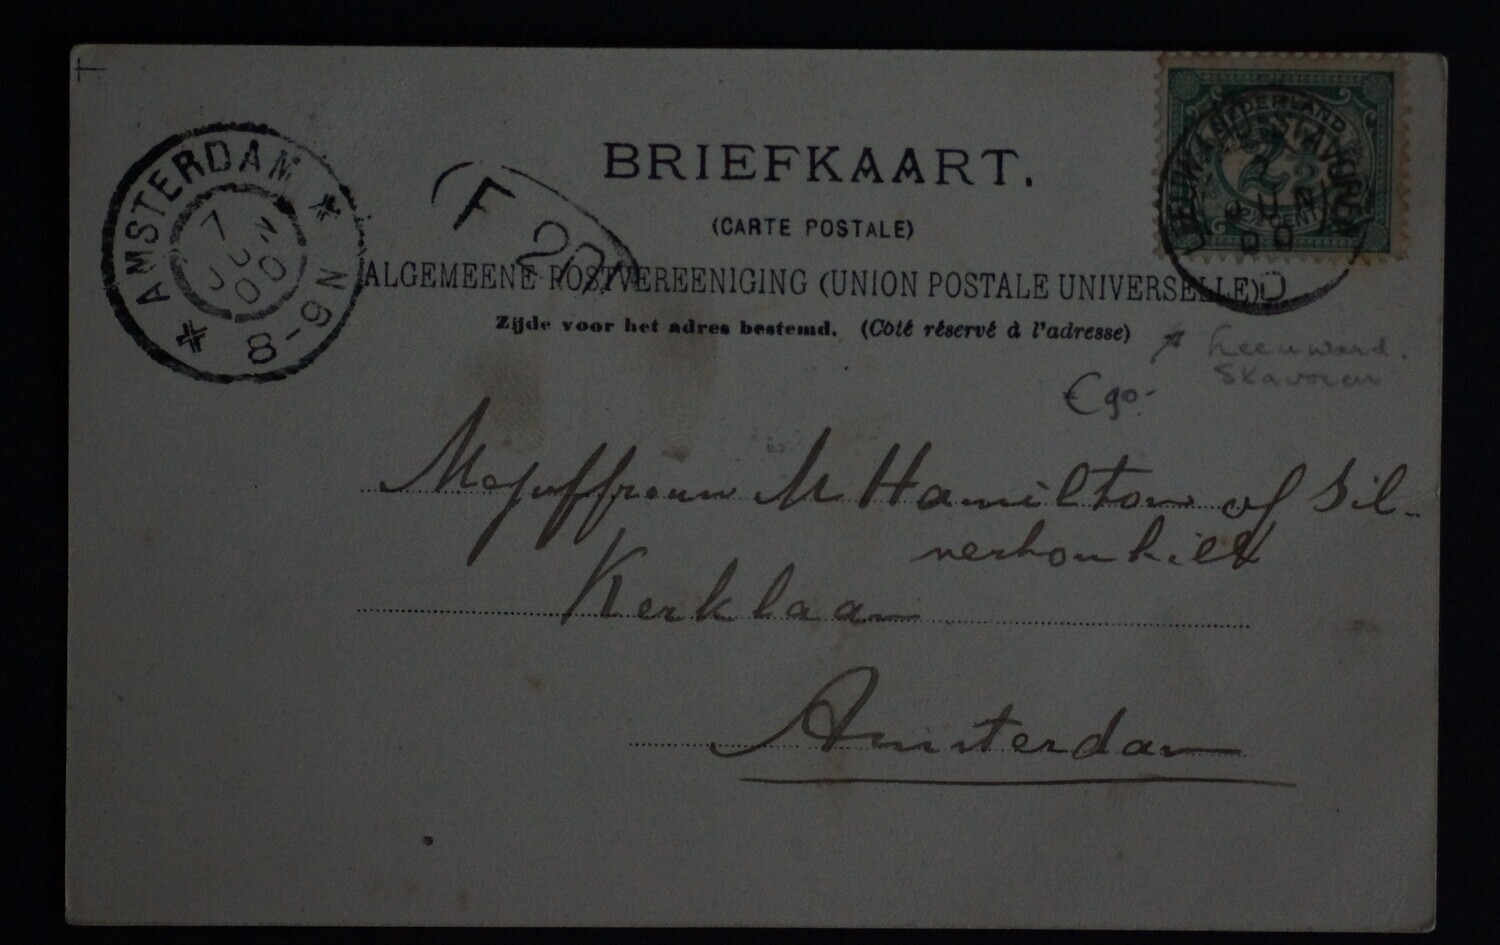 BRIEFKAART.
(CARTE POSTALE)
ALGEMEENE POSTVEREENIGING (UNION POSTALE UNIVERSELLE)
Zijde voor het adres bestemd. (Côté réservé à l'adresse)
AMSTERDAM
7 JUN 00
8-9N
F 20
NEDERLAND
2½
CENT
LEEUWARD-STAVOREN
JUN
00
D
Leeuward.
Stavoren
€ 90.-
Mejuffrouw M Hamilton of Sil-
verhonhill
Kerklaan
Amsterdam